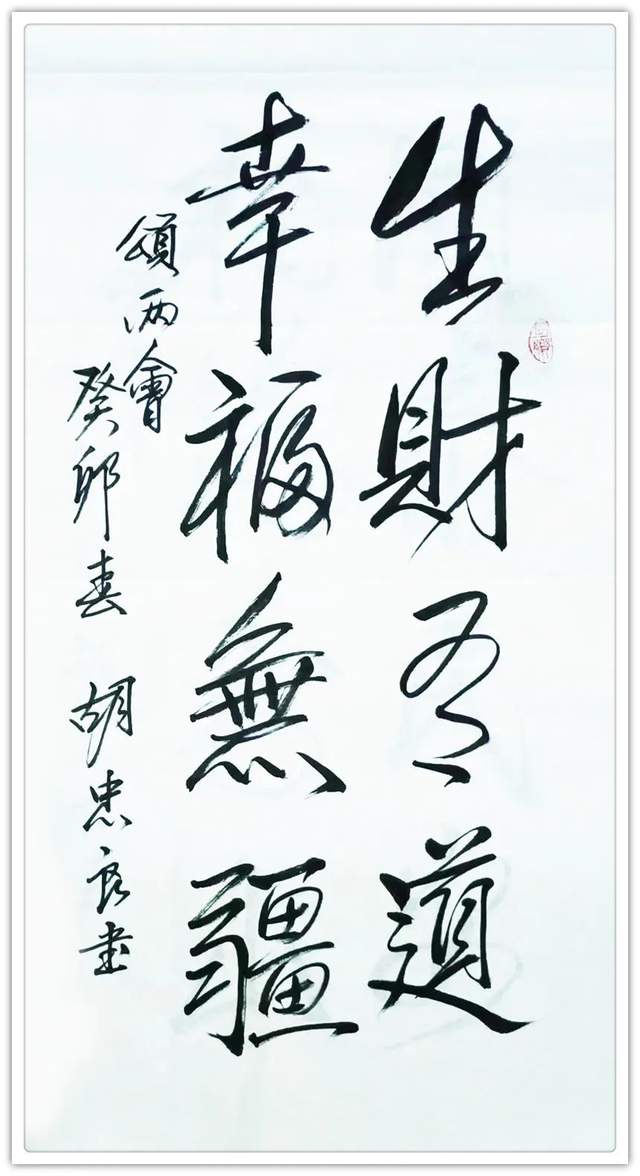 生財有道
幸福無疆
頌两會
癸卯春 胡忠良書